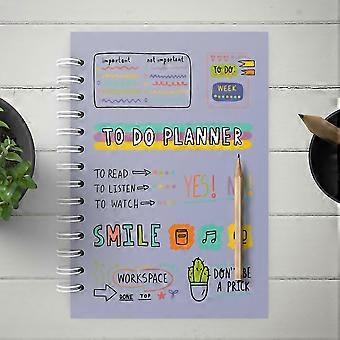 important not important
TO DO
WEEK
TO DO PLANNER
TO READ
TO LISTEN
TO WATCH
YES!
SMILE
WORKSPACE
DONE TOP
DON'T BE
A PRICK